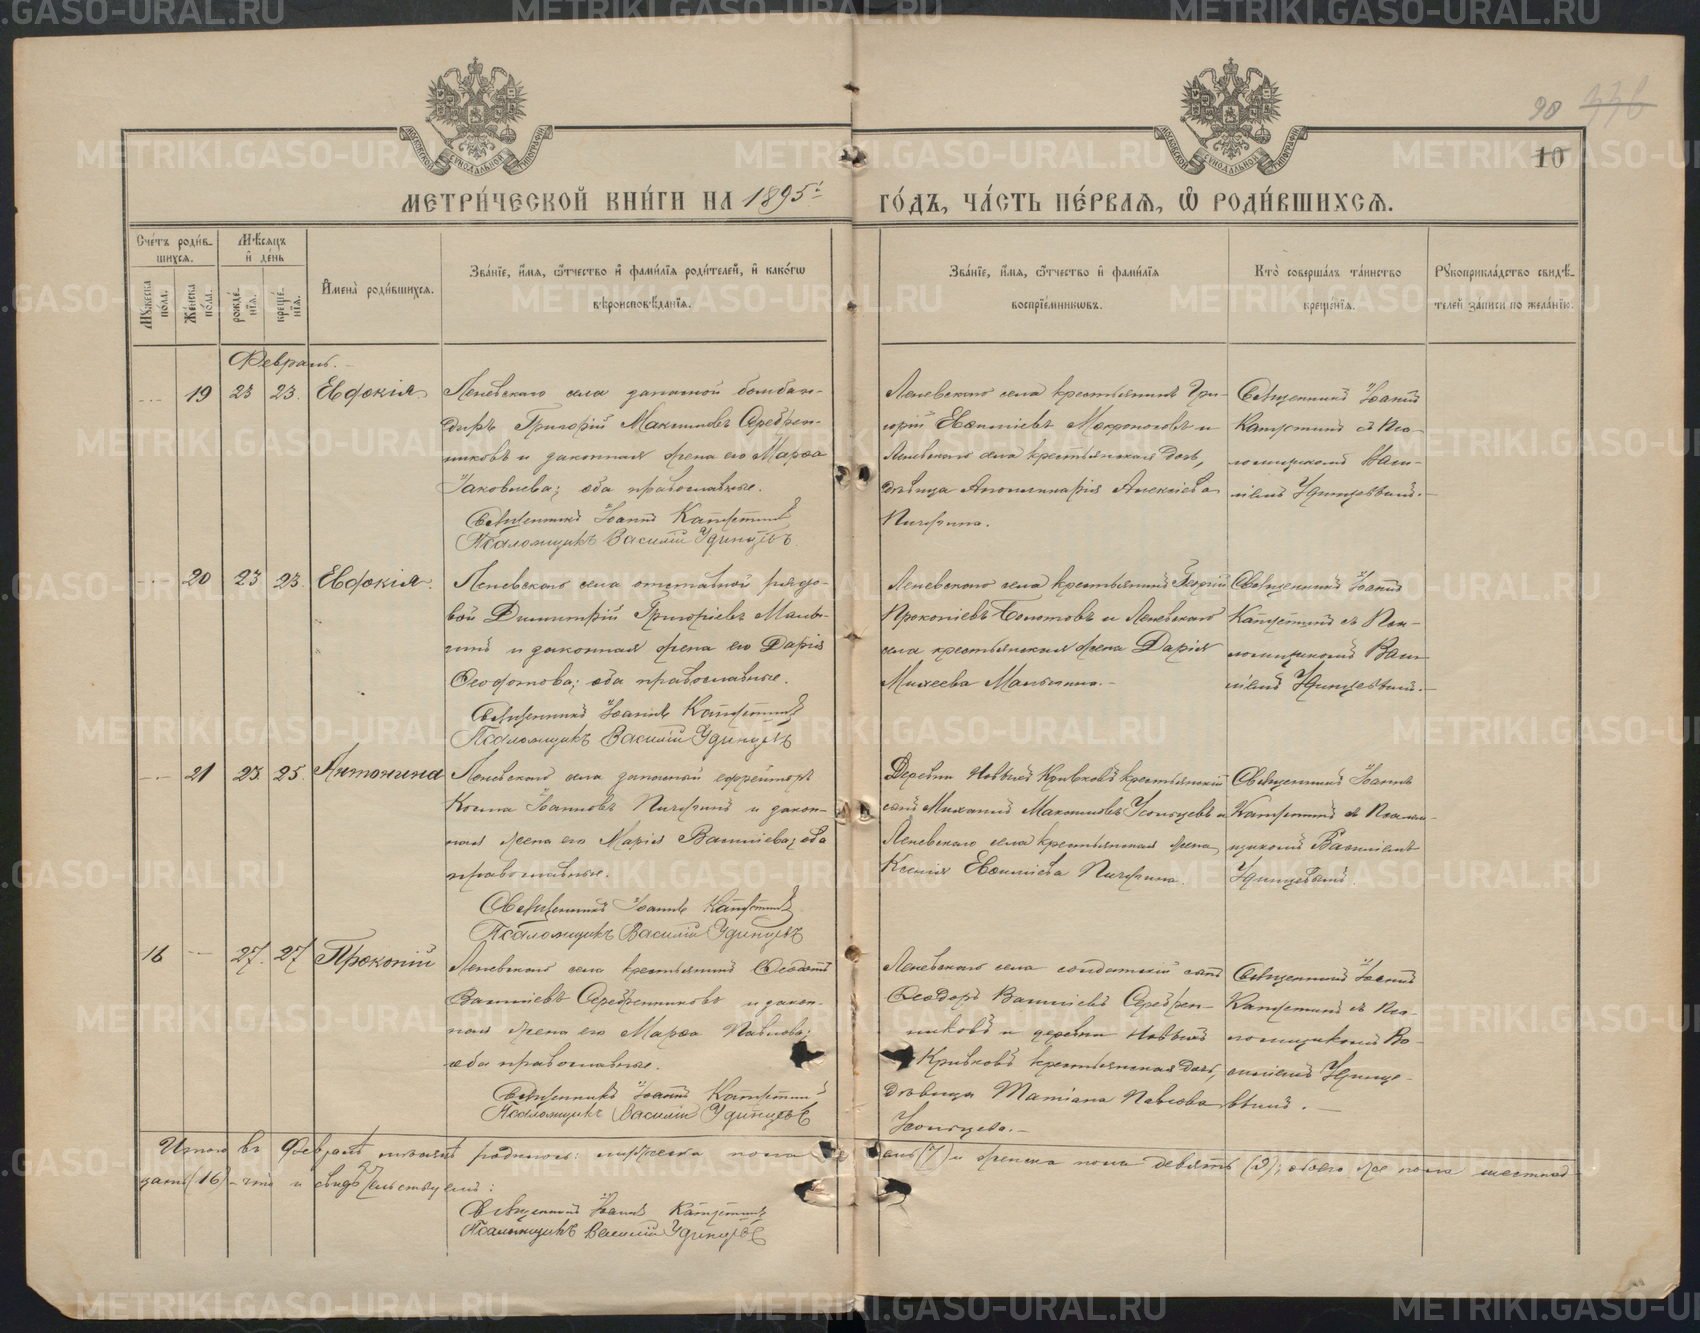 90 336
10
МЕТРИ́ЧЕСКОЙ КНИ́ГИ НА 1895й ГО́ДЪ, ЧА́СТЬ ПЕ́РВАЯ, Ѽ РОДИ́ВШИХСЯ.
Сче́тъ роди́вшихся.
Мꙋ́жеска по́ла.
Же́нска по́ла.
Мѣ́сяцъ и҆ де́нь
рожде́нїѧ.
креще́нїѧ.
И҆мена̀ роди́вшихсѧ.
Зва́нїе, и҆́мѧ, ѻ҆́тчество и҆ фами́лїѧ роди́телей, и҆ како́гѡ вѣроисповѣ́данїѧ.
Зва́нїе, и҆́мѧ, ѻ҆́тчество и҆ фами́лїѧ воспрїе́мникѡвъ.
Кто̀ соверша́лъ та́инство креще́нїѧ.
Рꙋкоприкла́дство свидѣ́телей за́писи по жела́нїю.
Февраль.
19 23 23. Евдокія
Леневскаго села запасной бомбар-
диръ Григорій Максимовъ Серебрен-
никовъ и законная жена его Марѳа
Іаковлева; оба православные.
Священникъ Іоаннъ Капустинъ
Псаломщикъ Василій Удинцевъ.
Леневскаго села крестьянинъ Гри-
горій Евѳиміевъ Мокроносовъ и
Леневскаго села крестьянская дочь,
дѣвица Аполлинарія Алексіева
Пичугина.
Священникъ Іоаннъ
Капустинъ съ Пса-
ломщикомъ Васи-
ліемъ Удинцевымъ.
20 23 23. Евдокія.
Леневскаго села отставной рядо-
вой Димитрій Григоріевъ Мальы-
гинъ и законная жена его Дарія
Ѳеофотова; оба православные.
Священникъ Іоаннъ Капустинъ
Псаломщикъ Василій Удинцевъ
Леневскаго села крестьянинъ Георгій
Прокопіевъ Болотовъ и Леневскаго
села крестьянская жена Дарія
Михеева Малыгина.
Священникъ Іоаннъ
Капустинъ съ Пса-
ломщикомъ Васи-
ліемъ Удинцевымъ.
21 23. 25. Антонина
Леневскаго села запасный ефрейторъ
Косма Іоанновъ Пичугинъ и закон-
ная жена его Марія Василіева; оба
православные.
Священникъ Іоаннъ Капустинъ
Псаломщикъ Василій Удинцевъ
Деревни Новыхъ Кривковъ крестьянскій
сынъ Михаилъ Максимовъ Усольцевъ и
Леневскаго села крестьянская жена
Ксенія Евѳиміева Пичугина.
Священникъ Іоаннъ
Капустинъ съ Псалом-
щикомъ Василіемъ
Удинцевымъ.
16 27. 27 Прокопій
Леневскаго села крестьянинъ Ѳеодотъ
Василіевъ Серебренниковъ и закон-
ная жена его Марѳа Павлова;
оба православные.
Священникъ Іоаннъ Капустинъ
Псаломщикъ Василій Удинцевъ
Леневскаго села солдатскій сынъ
Ѳеодоръ Василіевъ Серебрен-
никовъ и деревни Новыхъ
Кривковъ крестьянская дочь,
дѣвица Татіана Павлова
Усольцева.
Священникъ Іоаннъ
Капустинъ съ Пса-
ломщикомъ Ва-
силіемъ Удинце-
вымъ.
Итого въ Февралѣ мѣсяцѣ родилось: мужеска пола семь (7) и женска пола девять (9); обоего же пола шестнад-
цать (16) – что и свидѣтельствуемъ:
Священникъ Іоаннъ Капустинъ
Псаломщикъ Василій Удинцевъ
METRIKI.GASO-URAL.RU